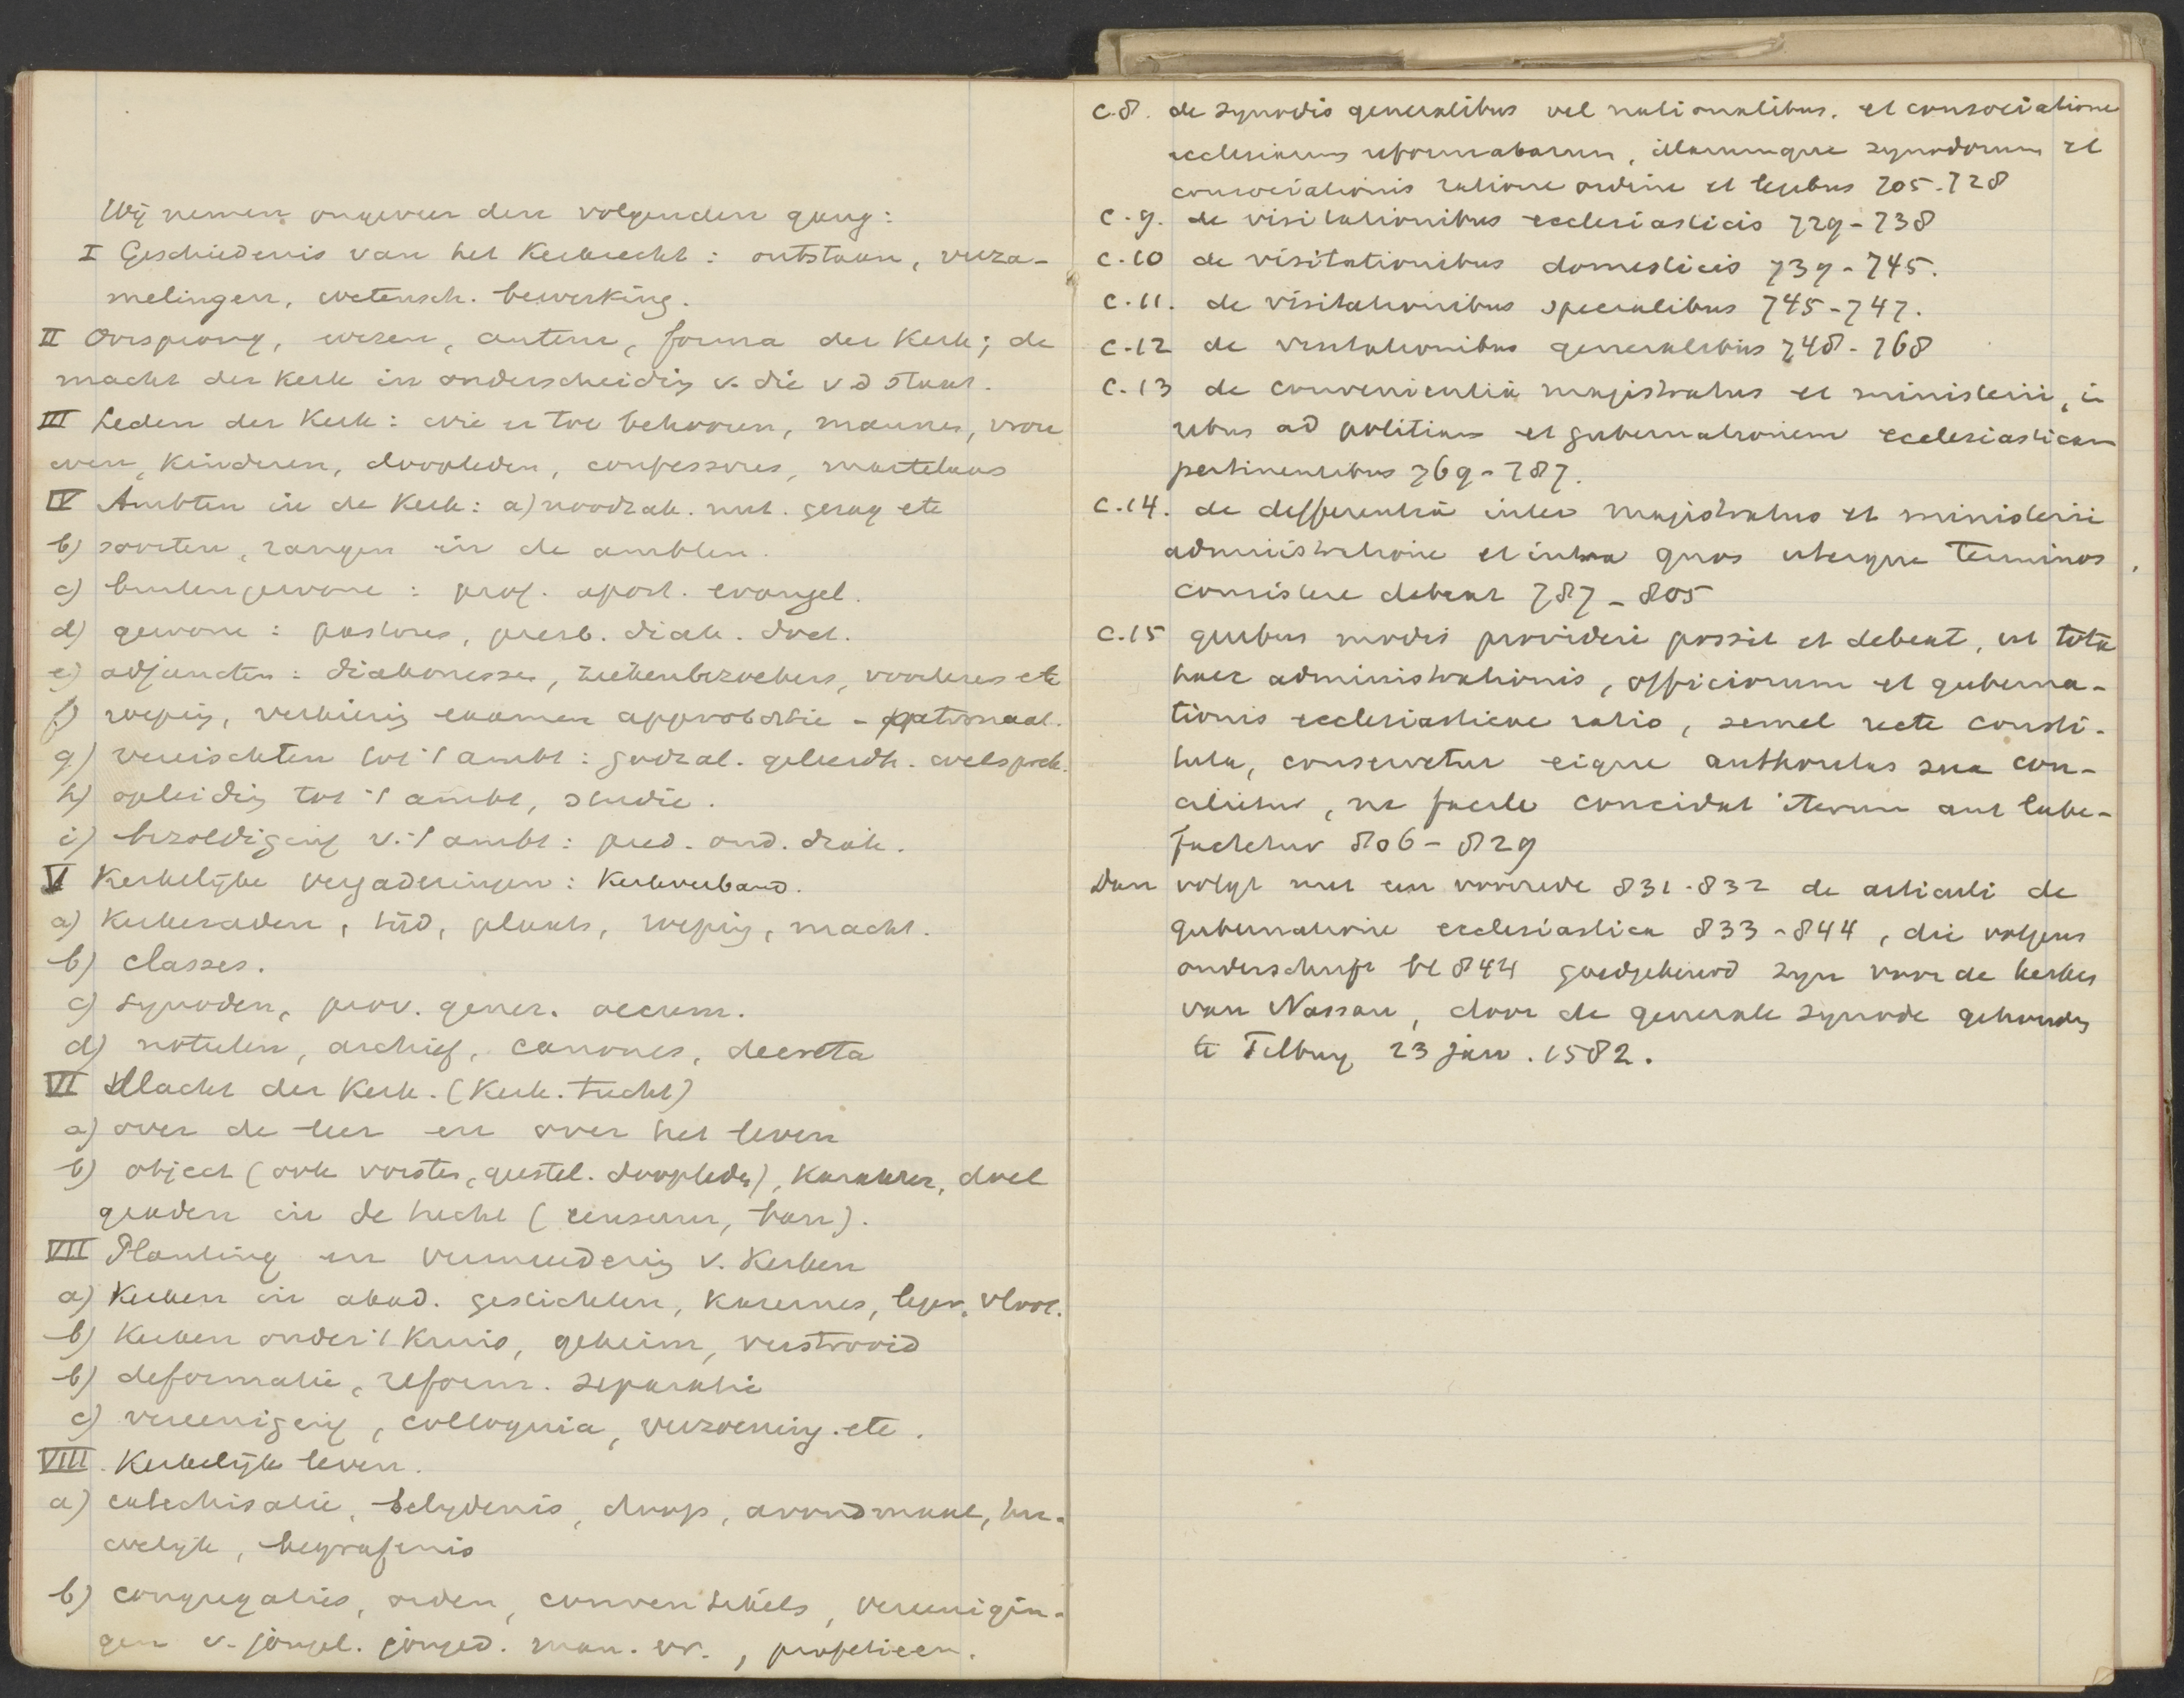 Wij nemen ongeveer den volgenden gang:
I Geschiedenis van het Kerkrecht: ontstaan, verza-
melingen, wetensch. bewerking.
II Oorsprong, wezen, autem, forma der Kerk; de
macht der Kerk in onderscheidig v. die v d staat.
III Leden der Kerk: wie er toe behooren, mannen, vrou
wen, Kinderen, doopleden, confessores, martelaars
IV Ambten in de Kerk: a) noodzak. nut. gezag etc
b) soorten, rangen in de ambten.
c) buitengewone: prof. apost. evangel.
d) gewone: pastores, presb. diak. doct.
e) adjuncten: diakonessen, ziekenbezoekers, voorlezers etc
f) roeping, verkiezig examen approbatie - patronaat.
g) vereischten tot 't ambt: godzal. geleerdh. welsprek.
h) opleidig tot 't ambt, studie.
i) bezoldiging v. 't ambt: pred. oud. diak.
V Kerkelijke vergaderingen: Kerkverband.
a) Kerkeraden, tijd, plaats, roepig, macht.
b) classes.
c) synoden, prov. gener. oecum.
d) notulen, archief, canones, decreta
VI Macht der Kerk. (Kerk. tucht)
a) over de leer en over het leven
b) object (ook vorsten, geestel. doopleden), Karakter, doel
graden in de tucht (censuur, ban).
VII Planting en vermeederig v. Kerken
a) Kerken in akad. gestichten, Kazernes, leger, vloot.
b) Kerken onder 't Kruis, geheim, verstrooid
b) deformatie, reform. separatie
c) vereeniging, colloquia, verzoening. etc.
VIII. Kerkelijk leven.
a) catechisatie, belydenis, doop, avondmaal, hu-
welijk, begrafenis
b) congregaties, orden, conventikels, vereenigin-
gen v. jongel. jonged. man. vr., profetieen.
C.8. de synodis generalibus vel nationalibus. et consociatione
ecclesiarum reformatarum, illarumque synodorum et
consociationis ratione ordine et legibus 705-728
C.9. de visitationibus ecclesiasticis 729-738
C.10 de visitationibus domesticis 739-745.
C.11. de visitationibus specialibus 745-747.
C.12 de visitationibus generalibus 748-768
C.13 de convenientia magistratus et ministerii, in
rebus ad politiam et gubernationem ecclesiasticam
pertinentibus 769-787.
C.14. de differentia inter magistratus et ministerii
administratione et intra quos uterque terminos
consistere debeat 787-805
C.15 quibus modis provideri possit et debeat, ut tota
haec administrationis, officiorum et guberna-
tionis ecclesiasticae ratio, semel recte consti-
tuta, conservetur eique authoritas sua con-
cilietur, ne facile concidat iterum aut labe-
factetur 806-829
Dan volgt met een voorrede 831-832 de articuli de
gubernatione ecclesiastica 833-844, die volgens
onderschrift bl 844 goedgekeurd zyn voor de kerken
van Nassau, door de generale synode gehouden
te Tilburg 23 jan. 1582.